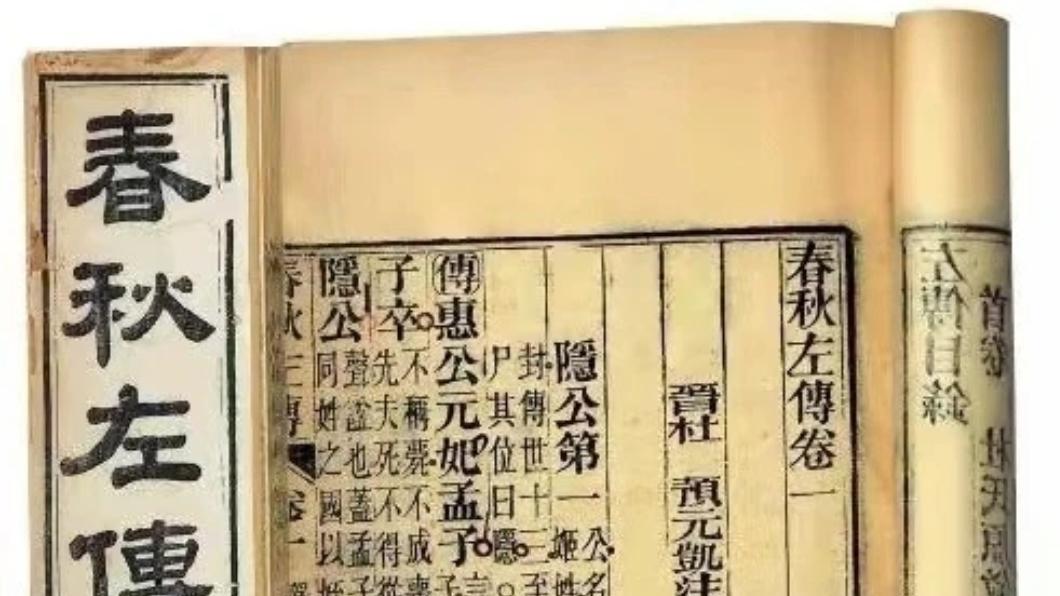 春秋左傳
春秋左傳卷一
晉杜 預元凱注
隱公第一 公名
姬姓
封傳世十三至
尸其位曰隱
傳惠公元妃孟子 言
子
子卒 不稱薨不成喪
先夫死不得從
隱公 聲謚也蓋孟子
同姓之國以姪
左傳目錄
首卷 杜氏原